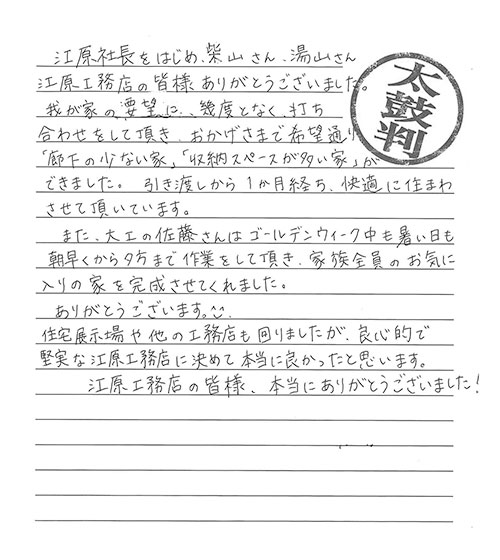 江原社長をはじめ、柴山さん、湯山さん
江原工務店の皆様ありがとうございました。
我が家の要望に、幾度となく打ち
合わせをして頂き、おかげさまで希望通り
「廊下の少ない家」「収納スペースが多い家」が
できました。引き渡しから1か月経ち、快適に住まわ
させて頂いています。
また、大工の佐藤さんはゴールデンウィーク中も暑い日も
朝早くから夕方まで作業をして頂き、家族全員のお気に
入りの家を完成させてくれました。
ありがとうございます。
住宅展示場や他の工務店も回りましたが、良心的で
堅実な江原工務店に決めて本当に良かったと思います。
江原工務店の皆様、本当にありがとうございました!
太鼓判